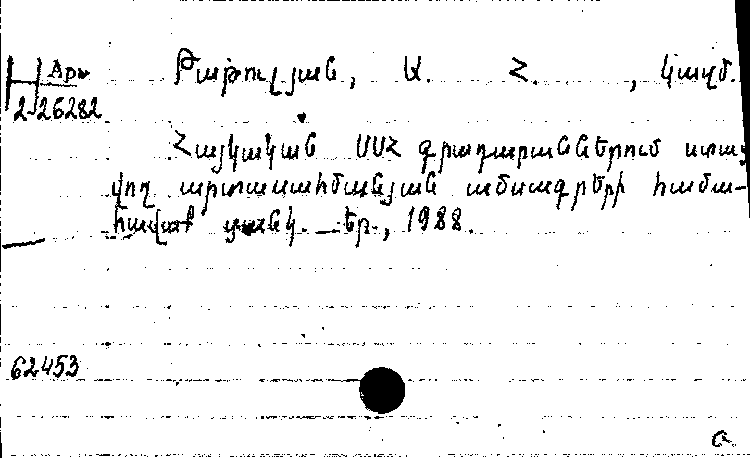 Արվ
2-26282
Թաթուլյան, Ա. Հ. , կազմ.
Հայկական ՍՍՀ գրադարաններում ստաց
վող արտասահմանյան ամսագրերի համա-
հավաք ցանկ. _ Եր., 1988.
62453
a